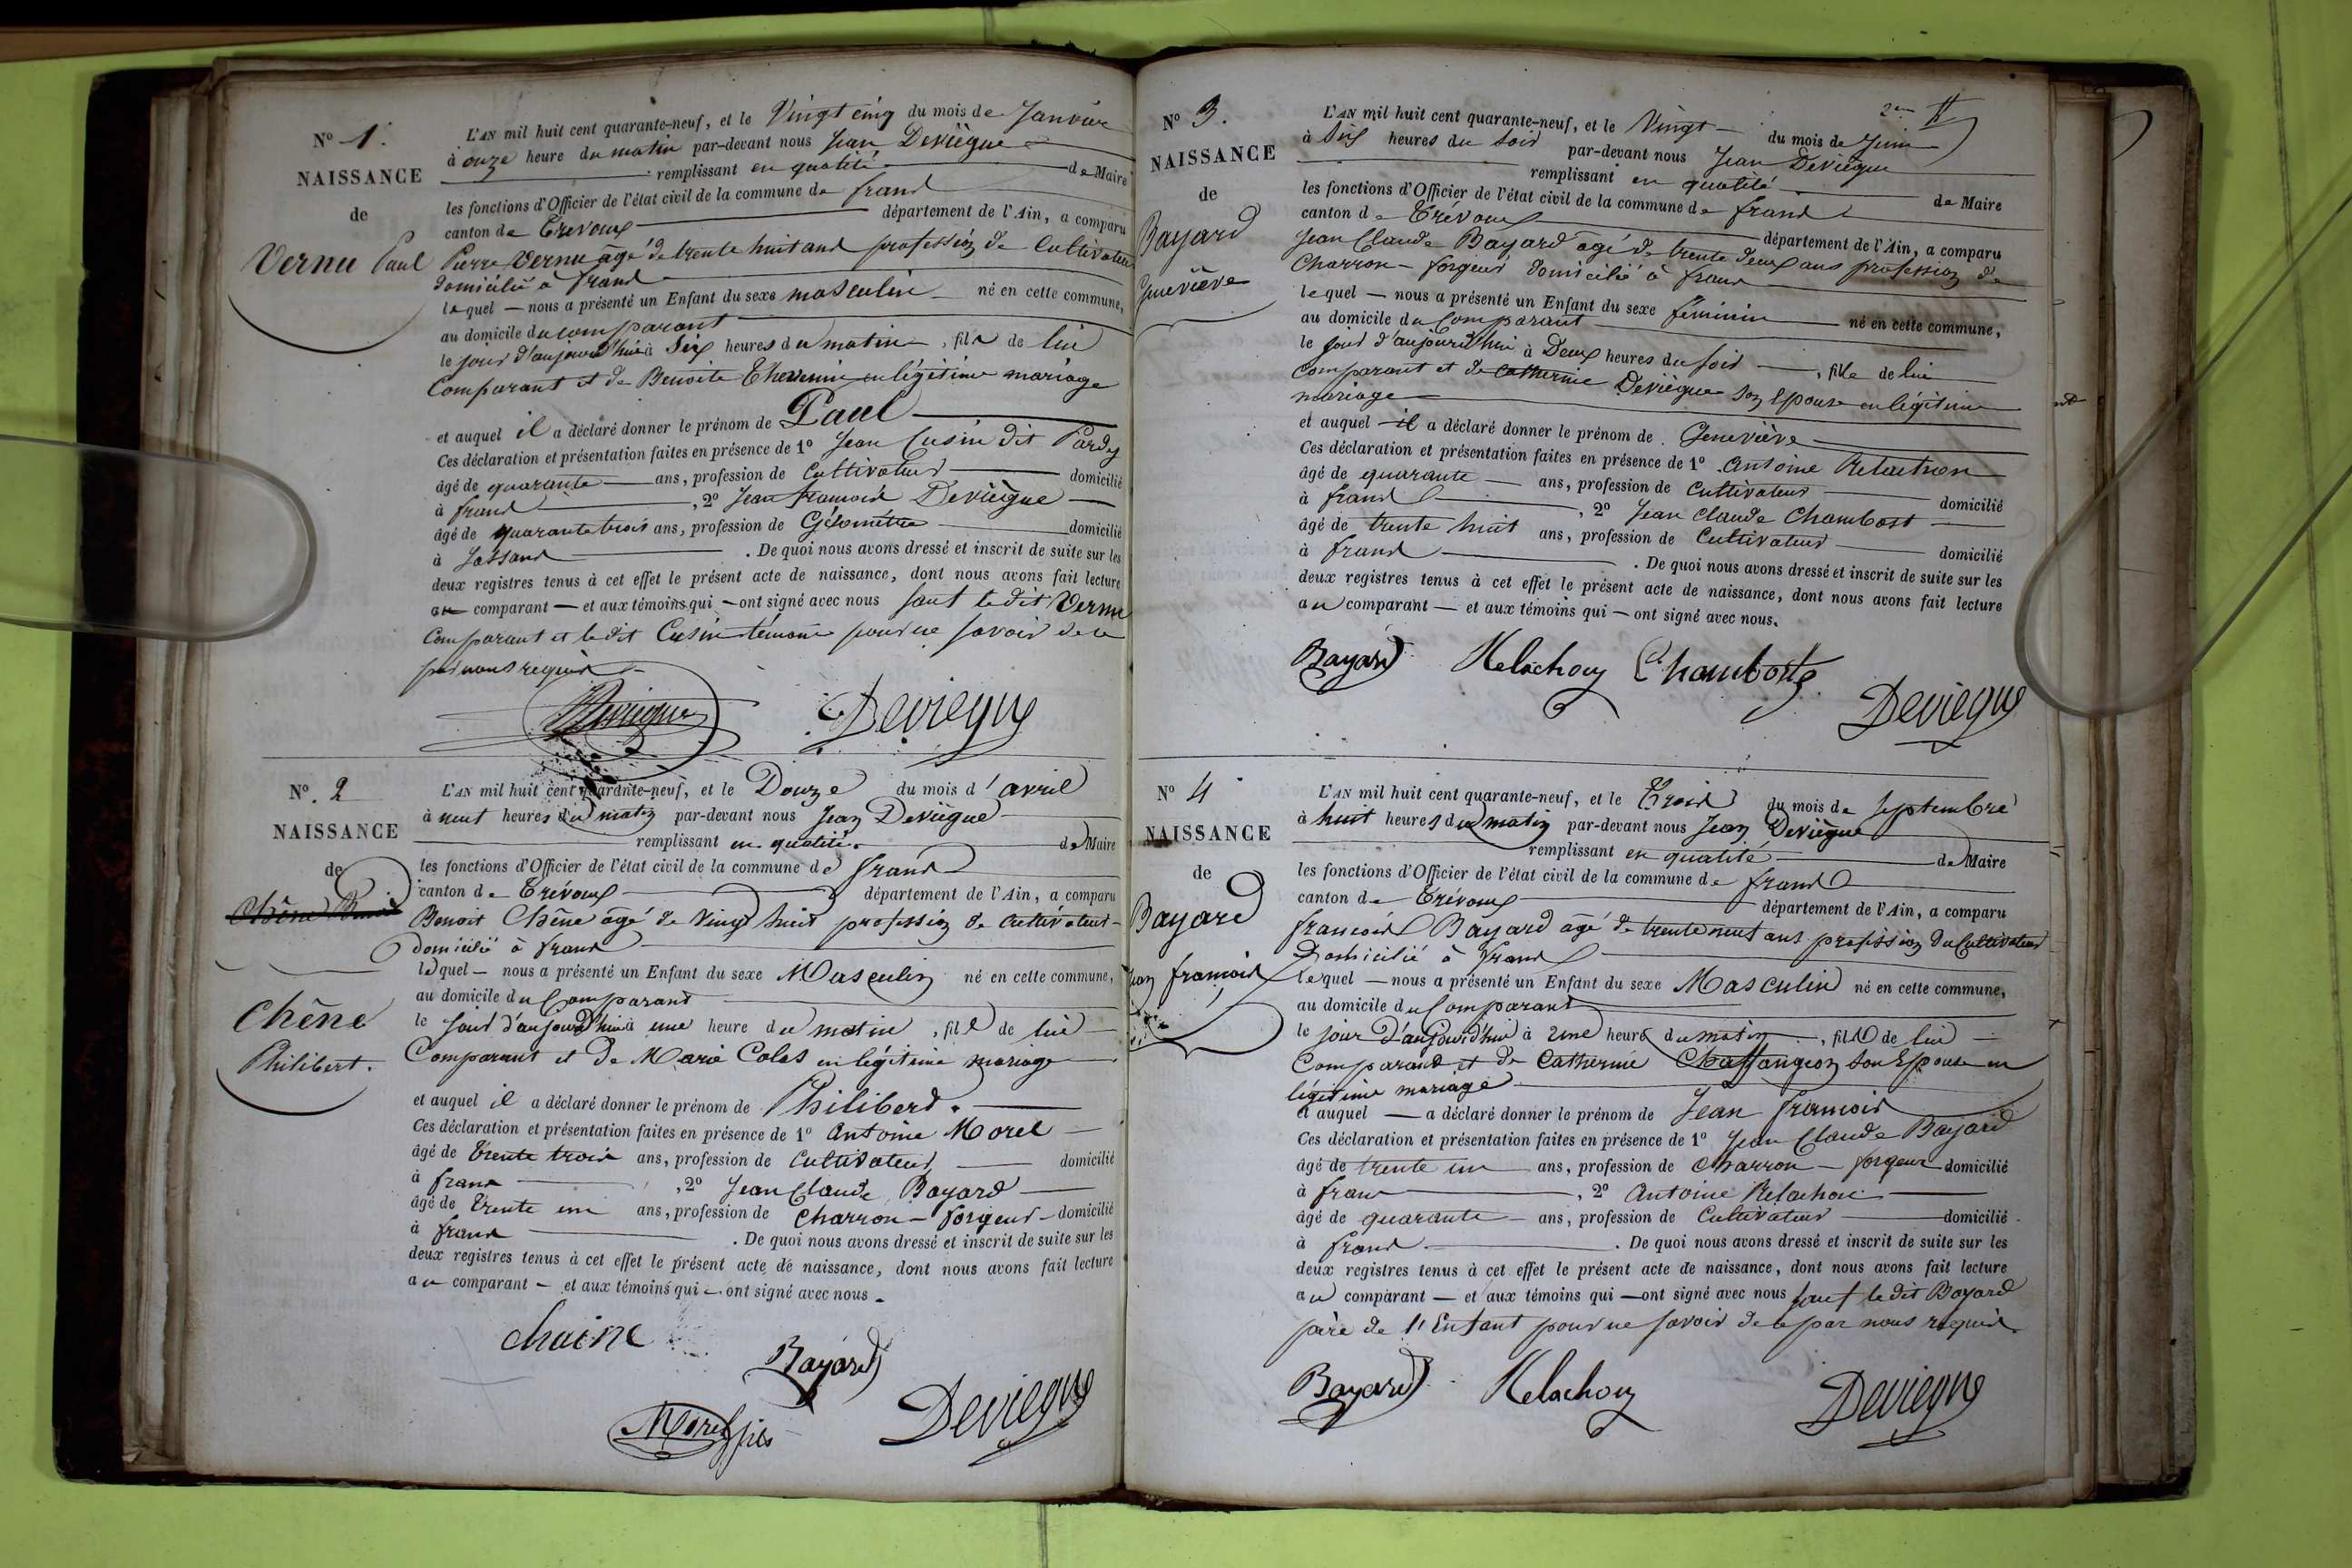 N° 1.
NAISSANCE
de
Vernu Paul
L'AN mil huit cent quarante-neuf, et le Vingt cinq du mois de Janvier
à onze heure du matin par-devant nous Jean Deviègue
remplissant en qualité de Maire
les fonctions d'Officier de l'état civil de la commune de frans
canton de Trévoux département de l'Ain, a comparu
Pierre Vernu âgé de trente huit ans profession de Cultivateur
domicilié à frans
lequel — nous a présenté un Enfant du sexe masculin né en cette commune,
au domicile du comparant
le jour d'aujourd'hui à Six heures du matin, fils de lui
Comparant et de Benoite Thevenin en légitime mariage
et auquel il a déclaré donner le prénom de Paul
Ces déclaration et présentation faites en présence de 1° Jean Cusin dit Pardy
âgé de quarante ans, profession de Cultivateur domicilié
à frans, 2° Jean françois Deviègue
âgé de quarante trois ans, profession de Géomètre domicilié
à Jassans. De quoi nous avons dressé et inscrit de suite sur les
deux registres tenus à cet effet le présent acte de naissance, dont nous avons fait lecture
au comparant — et aux témoins qui — ont signé avec nous sauf le dit Vernu
Comparant et le dit Cusin témoin pour ne savoir de ce
par nous requis
Deviegue
N°. 2
NAISSANCE
de
Chêne
Philibert.
L'AN mil huit cent quarante-neuf, et le Douze du mois d'avril
à neuf heures du matin par-devant nous Jean Deviègue
remplissant en qualité de Maire
les fonctions d'Officier de l'état civil de la commune de frans
canton de Trévoux département de l'Ain, a comparu
Benoit Chêne âgé de Vingt huit profession de Cultivateur
domicilié à frans
lequel — nous a présenté un Enfant du sexe Masculin né en cette commune,
au domicile du Comparant
le jour d'aujourd'hui à une heure du matin, fils de lui
Comparant et de Marie Colas en légitime mariage
et auquel il a déclaré donner le prénom de Philibert.
Ces déclaration et présentation faites en présence de 1° Antoine Morel
âgé de Trente trois ans, profession de Cultivateur domicilié
à frans, 2° Jean Claude Bayard
âgé de Trente un ans, profession de Charron - forgeur - domicilié
à frans. De quoi nous avons dressé et inscrit de suite sur les
deux registres tenus à cet effet le présent acte de naissance, dont nous avons fait lecture
au comparant — et aux témoins qui — ont signé avec nous.
chaine
Bayard
Morel fils
Deviegue
N° 3.
NAISSANCE
de
Bayard
Geneviève
2em
L'AN mil huit cent quarante-neuf, et le Vingt du mois de Juin
à Six heures du soir par-devant nous Jean Deviègue
remplissant en qualité de Maire
les fonctions d'Officier de l'état civil de la commune de frans
canton de Trévoux département de l'Ain, a comparu
Jean Claude Bayard âgé de trente deux ans profession de
Charron - forgeur domicilié à frans
lequel — nous a présenté un Enfant du sexe féminin né en cette commune,
au domicile du Comparant
le jour d'aujourd'hui à Deux heures du soir, fille de lui
Comparant et de Catherine Deviègue son Epouse en légitime
mariage
et auquel il a déclaré donner le prénom de Geneviève
Ces déclaration et présentation faites en présence de 1° Antoine
âgé de quarante ans, profession de Cultivateur domicilié
à frans, 2° Jean Claude Chambost
âgé de trente huit ans, profession de Cultivateur domicilié
à frans. De quoi nous avons dressé et inscrit de suite sur les
deux registres tenus à cet effet le présent acte de naissance, dont nous avons fait lecture
au comparant — et aux témoins qui — ont signé avec nous.
Bayard Relachon Chambost
Deviegue
N° 4
NAISSANCE
de
Bayard
Jean françois
L'AN mil huit cent quarante-neuf, et le Trois du mois de Septembre
à huit heures du matin par-devant nous Jean Deviègue
remplissant en qualité de Maire
les fonctions d'Officier de l'état civil de la commune de frans
canton de Trévoux département de l'Ain, a comparu
françois Bayard âgé de trente neuf ans profession de Cultivateur
Domicilié à frans
lequel — nous a présenté un Enfant du sexe Masculin né en cette commune,
au domicile du Comparant
le jour D'aujourd'hui à une heure du matin, fils de lui
Comparant et de Catherine Chaffangeon son Epouse en
légitime mariage
et auquel — a déclaré donner le prénom de Jean françois
Ces déclaration et présentation faites en présence de 1° Jean Claude Bayard
âgé de trente un ans, profession de Charron - forgeur domicilié
à frans, 2° Antoine Relachon
âgé de quarante ans, profession de Cultivateur domicilié
à frans. De quoi nous avons dressé et inscrit de suite sur les
deux registres tenus à cet effet le présent acte de naissance, dont nous avons fait lecture
au comparant — et aux témoins qui — ont signé avec nous sauf le dit Bayard
père de l'Enfant pour ne savoir de ce par nous requis.
Bayard Relachon
Deviegue